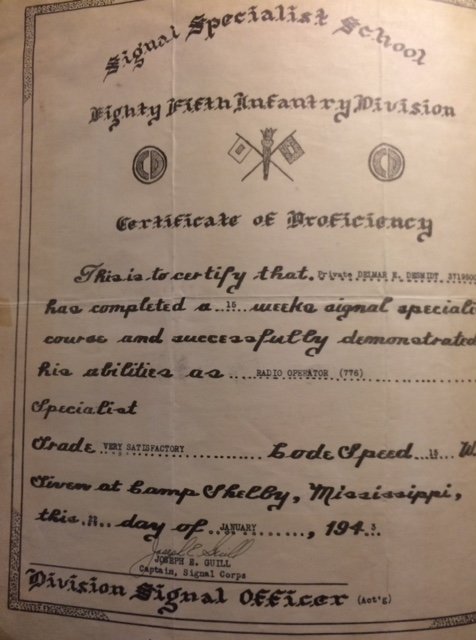 Signal Specialist School
Eighty Fifth Infantry Division
Certificate of Proficiency
This is to certify that. Private DELMAR E. DESMIDT
has completed a ..15.. weeks signal speciali
course and successfully demonstrated
his abilities as ....RADIO OPERATOR (776)..........
Specialist
Grade VERY SATISFACTORY .......... Code Speed ..15.. W.
Given at Camp Shelby, Mississippi,
this .... day of ..JANUARY........, 194 3.
Joseph E. Guill
JOSEPH E. GUILL
Captain, Signal Corps
Division Signal Officer (Act'g)